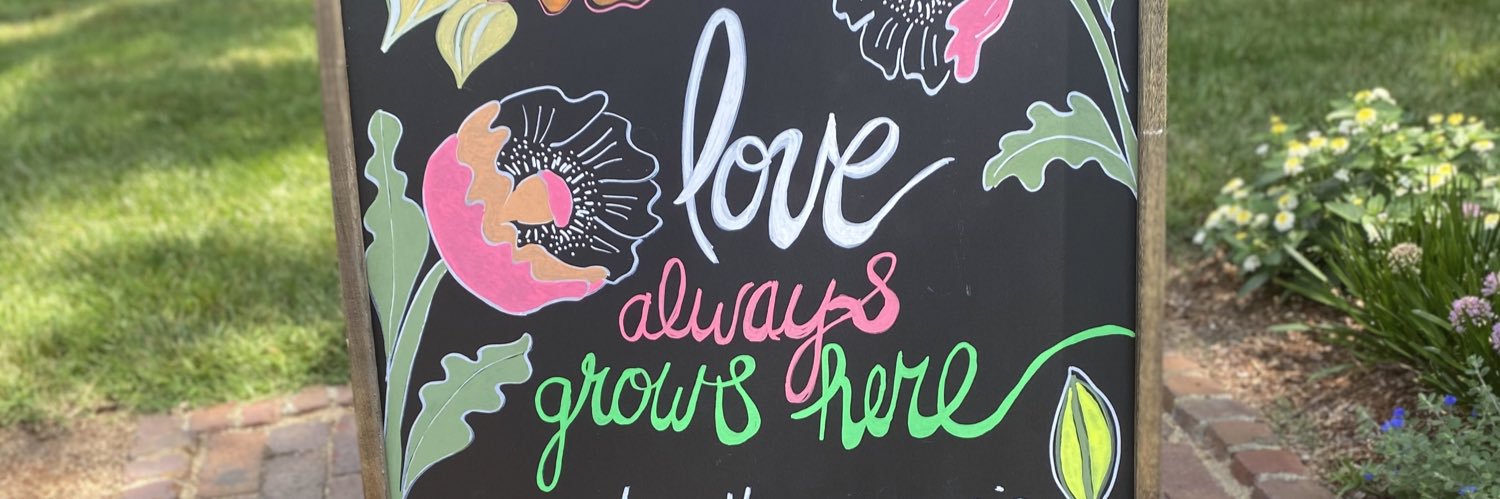 love
always
grows here